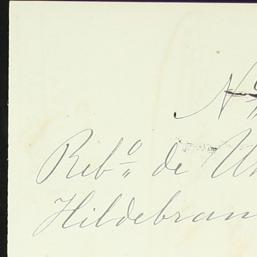 Nº
Ribº de
Hildebran